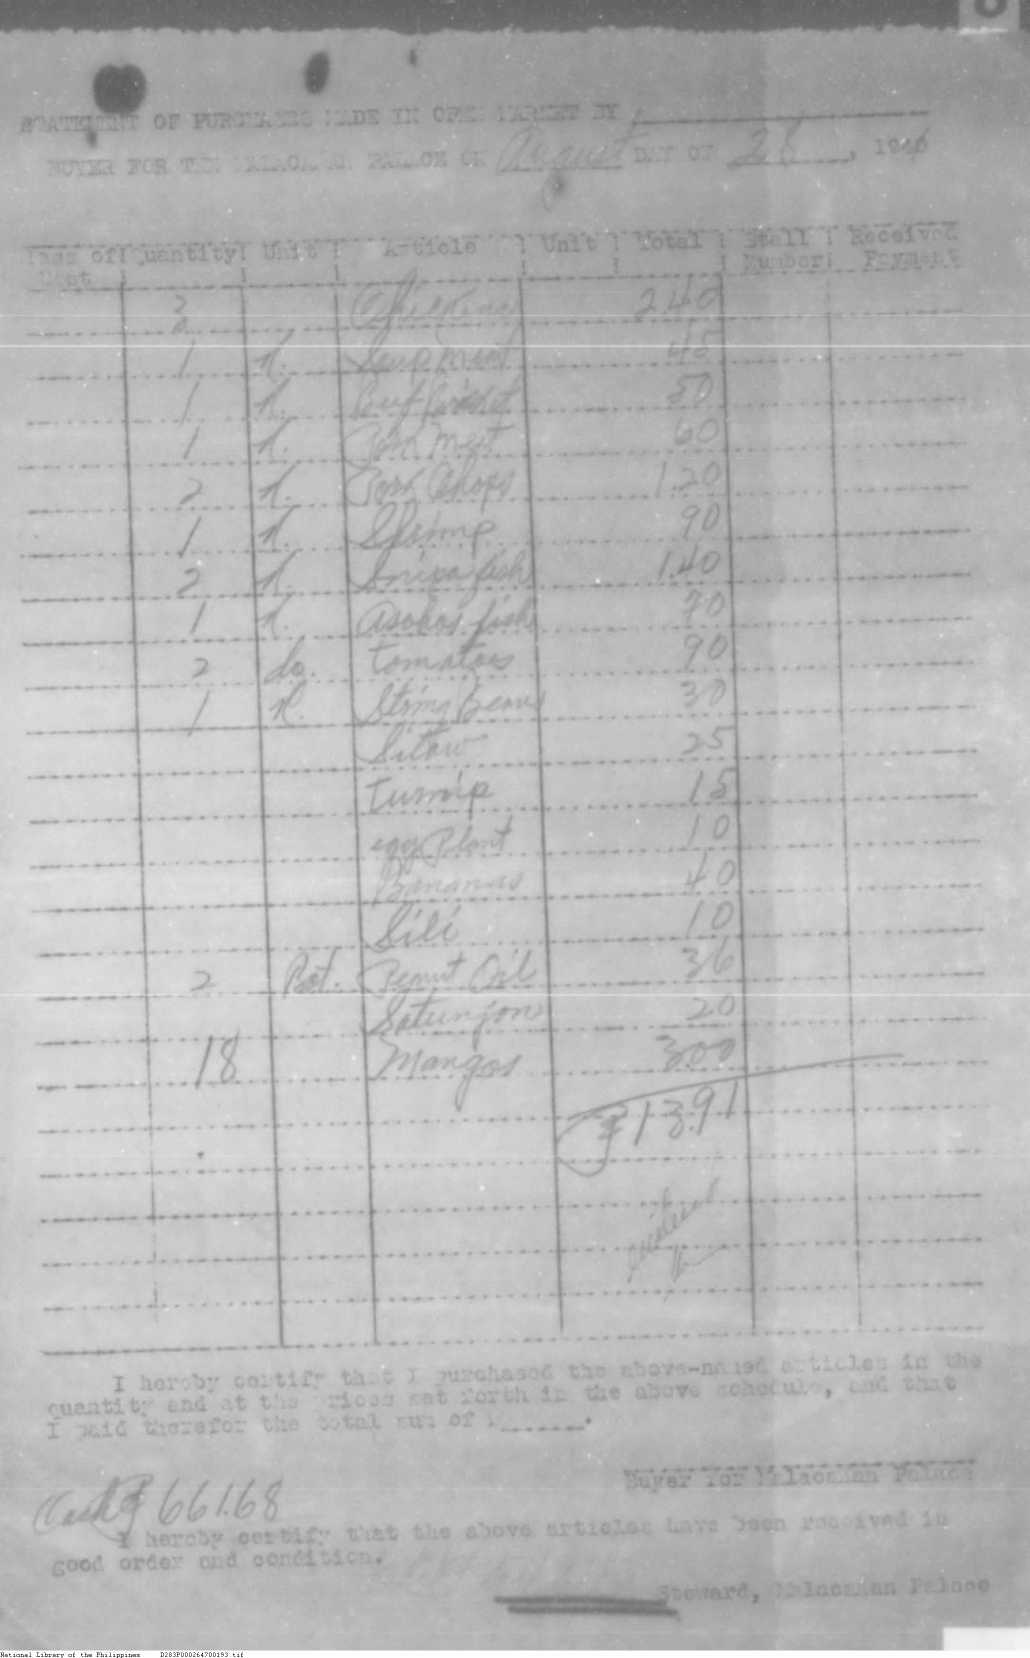 STATEMENT OF PURCHASES MADE IN OPEN MARKET BY
BUYER FOR THE MALACAÑAN PALACE ON August DAY OF 28, 1946
Quantity Unit Article Unit Total Stall Number Received Payment
Cost
2 Chickens 2.40
1 K. Soup Meat 45
1 K. Beef Brisket 50
1 K. Pork Meat 60
2 K. Pork Chops 1.20
1 K. Shrimp 90
2 K. fish 1.40
1 K. Asohos fish 70
2 do. tomatoes 90
1 K. String Beans 30
Sitaw 25
turnip 15
egg Plant 10
Bananas 40
Sili 10
2 Bot. Penut Oil 36
20
18 Mangos 3.00
₱13.91
I hereby certify that I purchased the above-named articles in the
quantity and at the prices set forth in the above schedule, and that
I paid therefor the total sum of
Buyer for Malacañan Palace
Cash ₱ 661.68
I hereby certify that the above articles have been received in
good order and condition.
Steward, Malacañan Palace
National Library of the Philippines D283P000264700193.tif